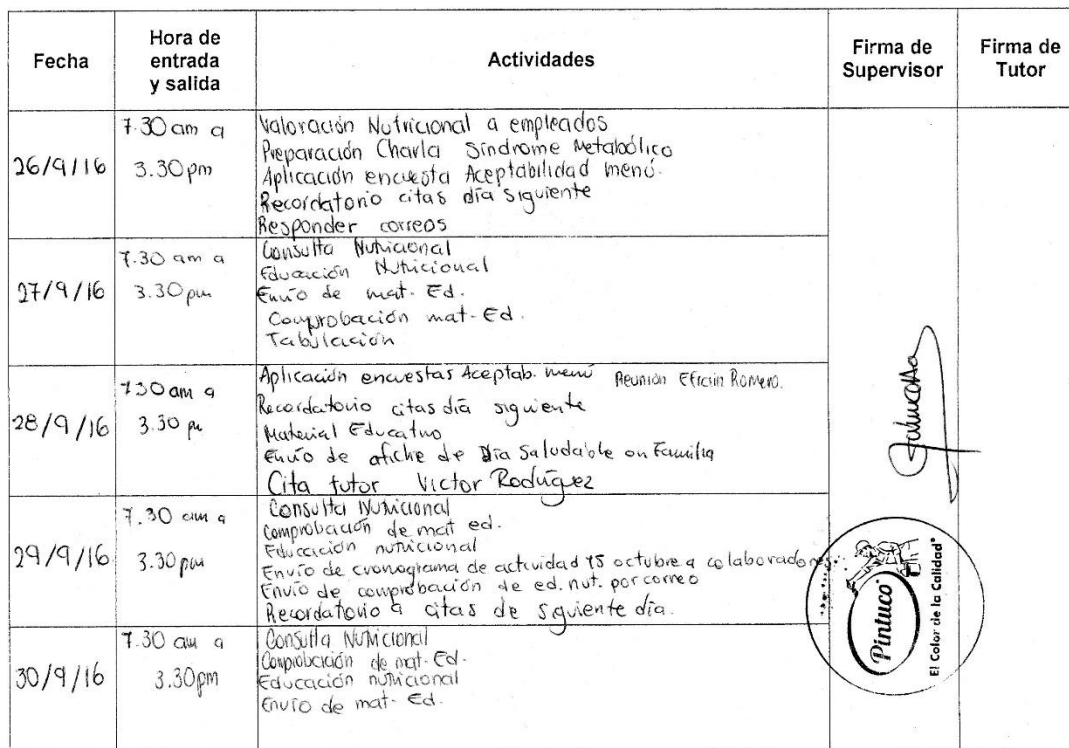 Fecha
Hora de
entrada
y salida
Actividades
Firma de
Supervisor
Firma de
Tutor
26/9/16
7.30 am a
3.30 pm
Valoración Nutricional a empleados
Preparación Charla Síndrome Metabólico
Aplicación encuesta Aceptabilidad menú.
Recordatorio citas día siguiente
Responder correos
27/9/16
7.30 am a
3.30 pm
Consulta Nutricional
Educación Nutricional
Envío de mat. Ed.
Comprobación mat. Ed.
Tabulación
28/9/16
730 am a
3.30 pm
Aplicación encuestas Aceptab. menú Reunión Efraín Romero.
Recordatorio citas día siguiente
Material Educativo
Envío de afiche de Día Saludable en Familia
Cita tutor Victor Rodríguez
29/9/16
7.30 am a
3.30 pm
Consulta Nutricional
Comprobación de mat ed.
Educación nutricional
Envío de cronograma de actividad 15 octubre a colaboradores.
Envío de comprobación de ed. nut. por correo
Recordatorio a citas de siguiente día.
30/9/16
7.30 am a
3.30pm
Consulta Nutricional
Comprobación de mat. Ed.
Educación nutricional
Envío de mat. Ed.
Pintuco
El Color de la Calidad®